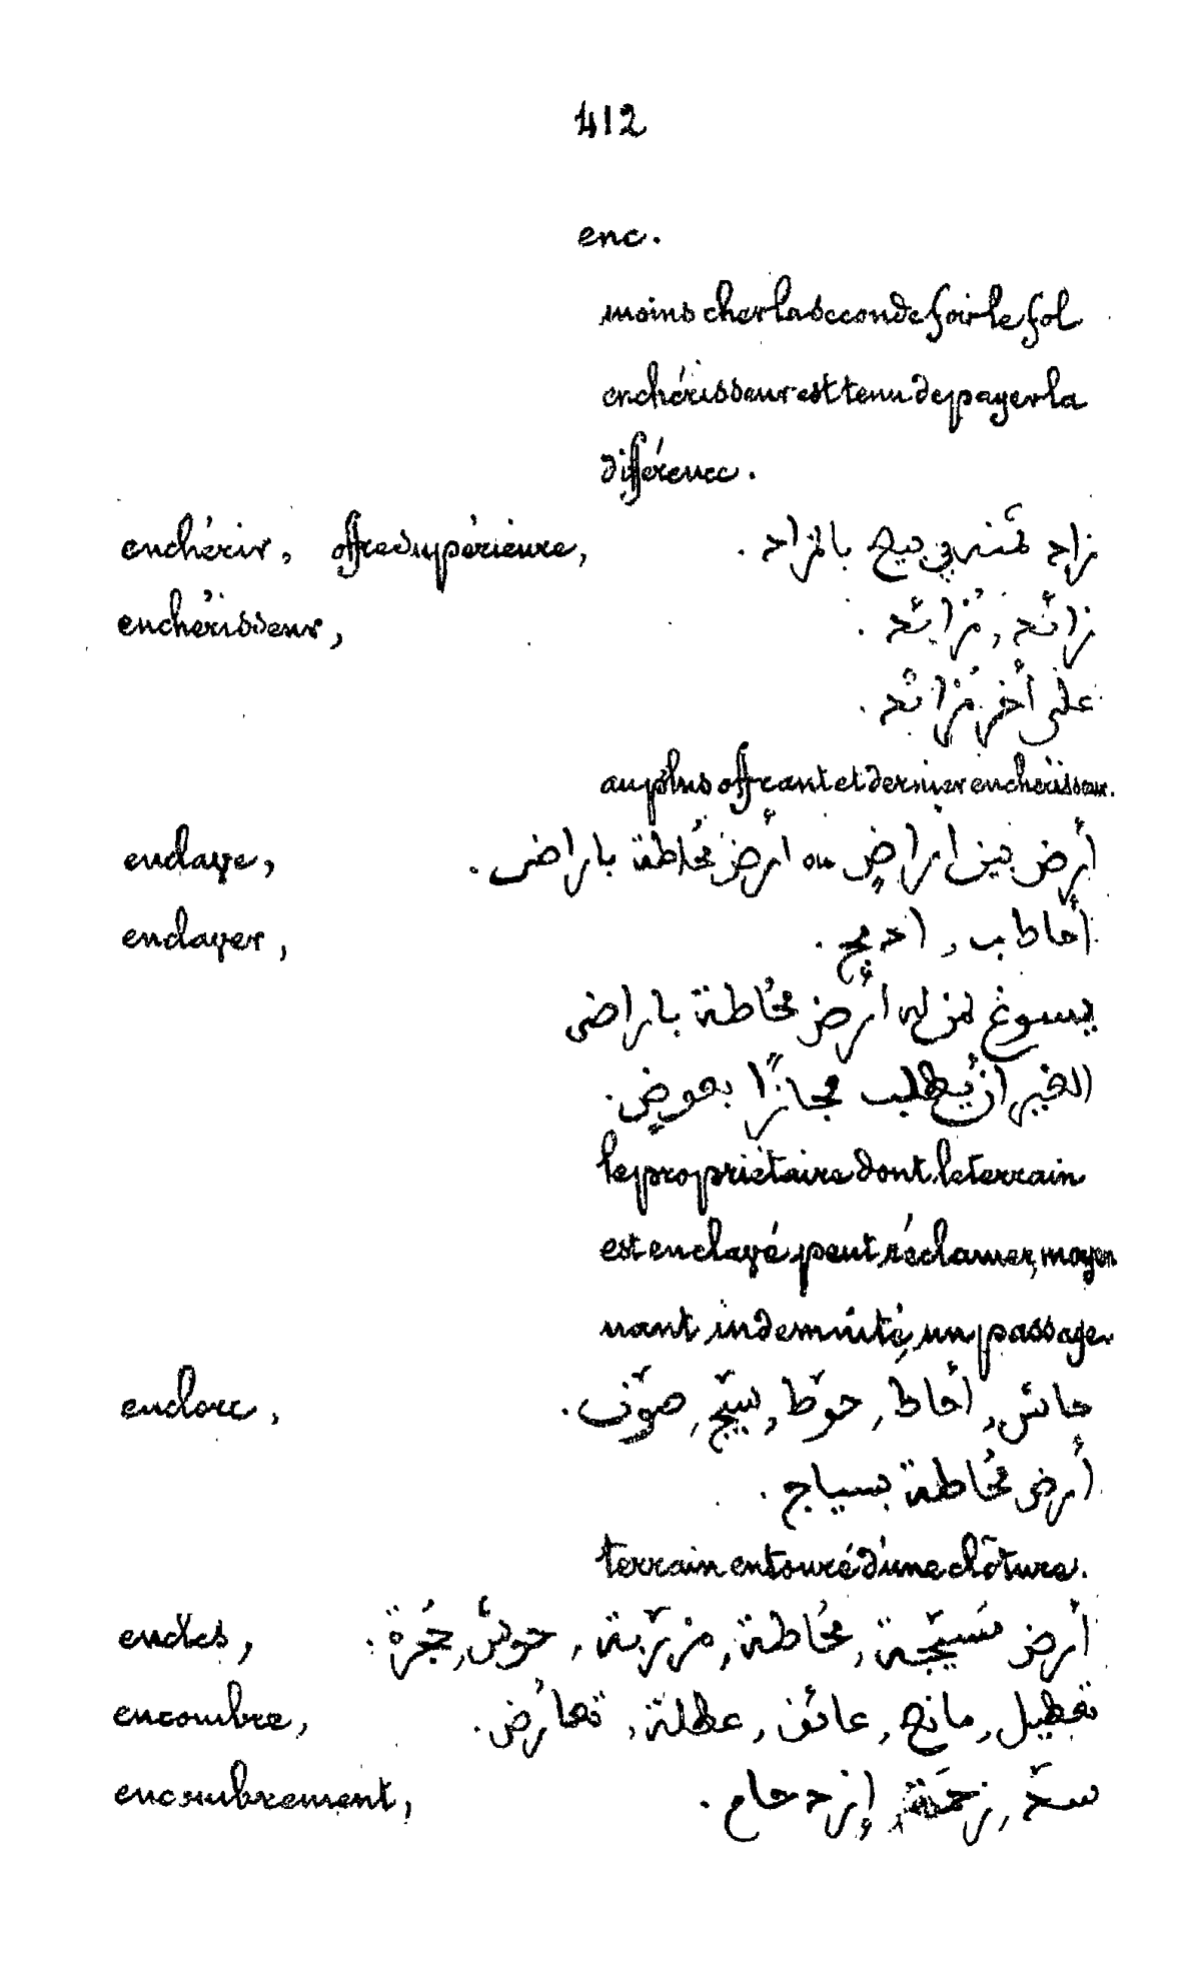 412
enc.
moins cher la seconde fois le fol
enchérisseur est tenu de payer la
différence.
enchérir, offre supérieure, زاد ثمنه في بيع بالمزاد.
enchérisseur, زائد, مُزائد.
على أخر مُزائد.
au plus offrant et dernier enchérisseur.
enclave, أرض بين اراضٍ ou ارض مُحاطة باراضى.
enclaver, أحاط ب, ادمج.
يسوغ لمن له ارض مُحاطة باراضى
الغير ان يُطلب مجازًا بعوضٍ.
le propriétaire dont le terrain
est enclavé peut réclamer, moyen
nant indemnité, un passage.
enclore, حاش, أحاط, حوّط, سيّج, صوّن.
أرض مُحاطة بسياج.
terrain entouré d'une clôture.
enclos, أرض مُسَيّجة, مُحاطة, مزرّبة, حوش, حُجرة.
encombre, تعطيل, مانع, عائق, عطلة, تعارُض.
encombrement, سدّ, زحمَة, إزدحام.